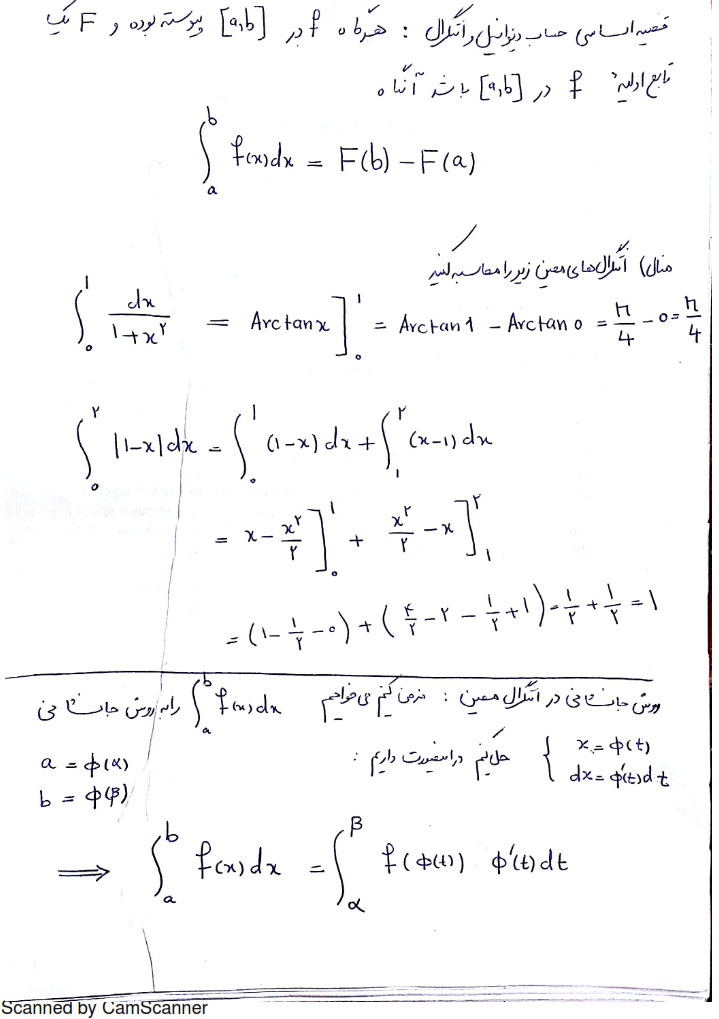 قضیه اساسی حساب دیفرانسیل و انتگرال : هرگاه f در [a,b] پیوسته بوده و F یک
تابع اولیه f در [a,b] باشد آنگاه
∫_a^b f(x)dx = F(b) – F(a)
مثال) انتگرال‌های معین زیر را محاسبه کنید
∫_۰^۱ dx/(۱+x^۲) = Arctanx ]_۰^۱ = Arctan1 – Arctan0 = π/4 – 0 = π/4
∫_۰^۲ |۱–x|dx = ∫_۰^۱ (۱–x)dx + ∫_۱^۲ (x–۱)dx
= x – x^۲/۲ ]_۰^۱ + x^۲/۲ – x ]_۱^۲
= (۱ – ۱/۲ – ۰) + (۴/۲ – ۲ – ۱/۲ + ۱) = ۱/۲ + ۱/۲ = ۱
روش جانشانی در انتگرال معین : فرض کنیم می‌خواهیم ∫_a^b f(x)dx را به روش جانشانی
{ x = φ(t) dx = φ'(t)dt حل کنیم در اینصورت داریم :
a = φ(α)
b = φ(β)
⟹ ∫_a^b f(x)dx = ∫_α^β f(φ(t)) φ'(t)dt
Scanned by CamScanner